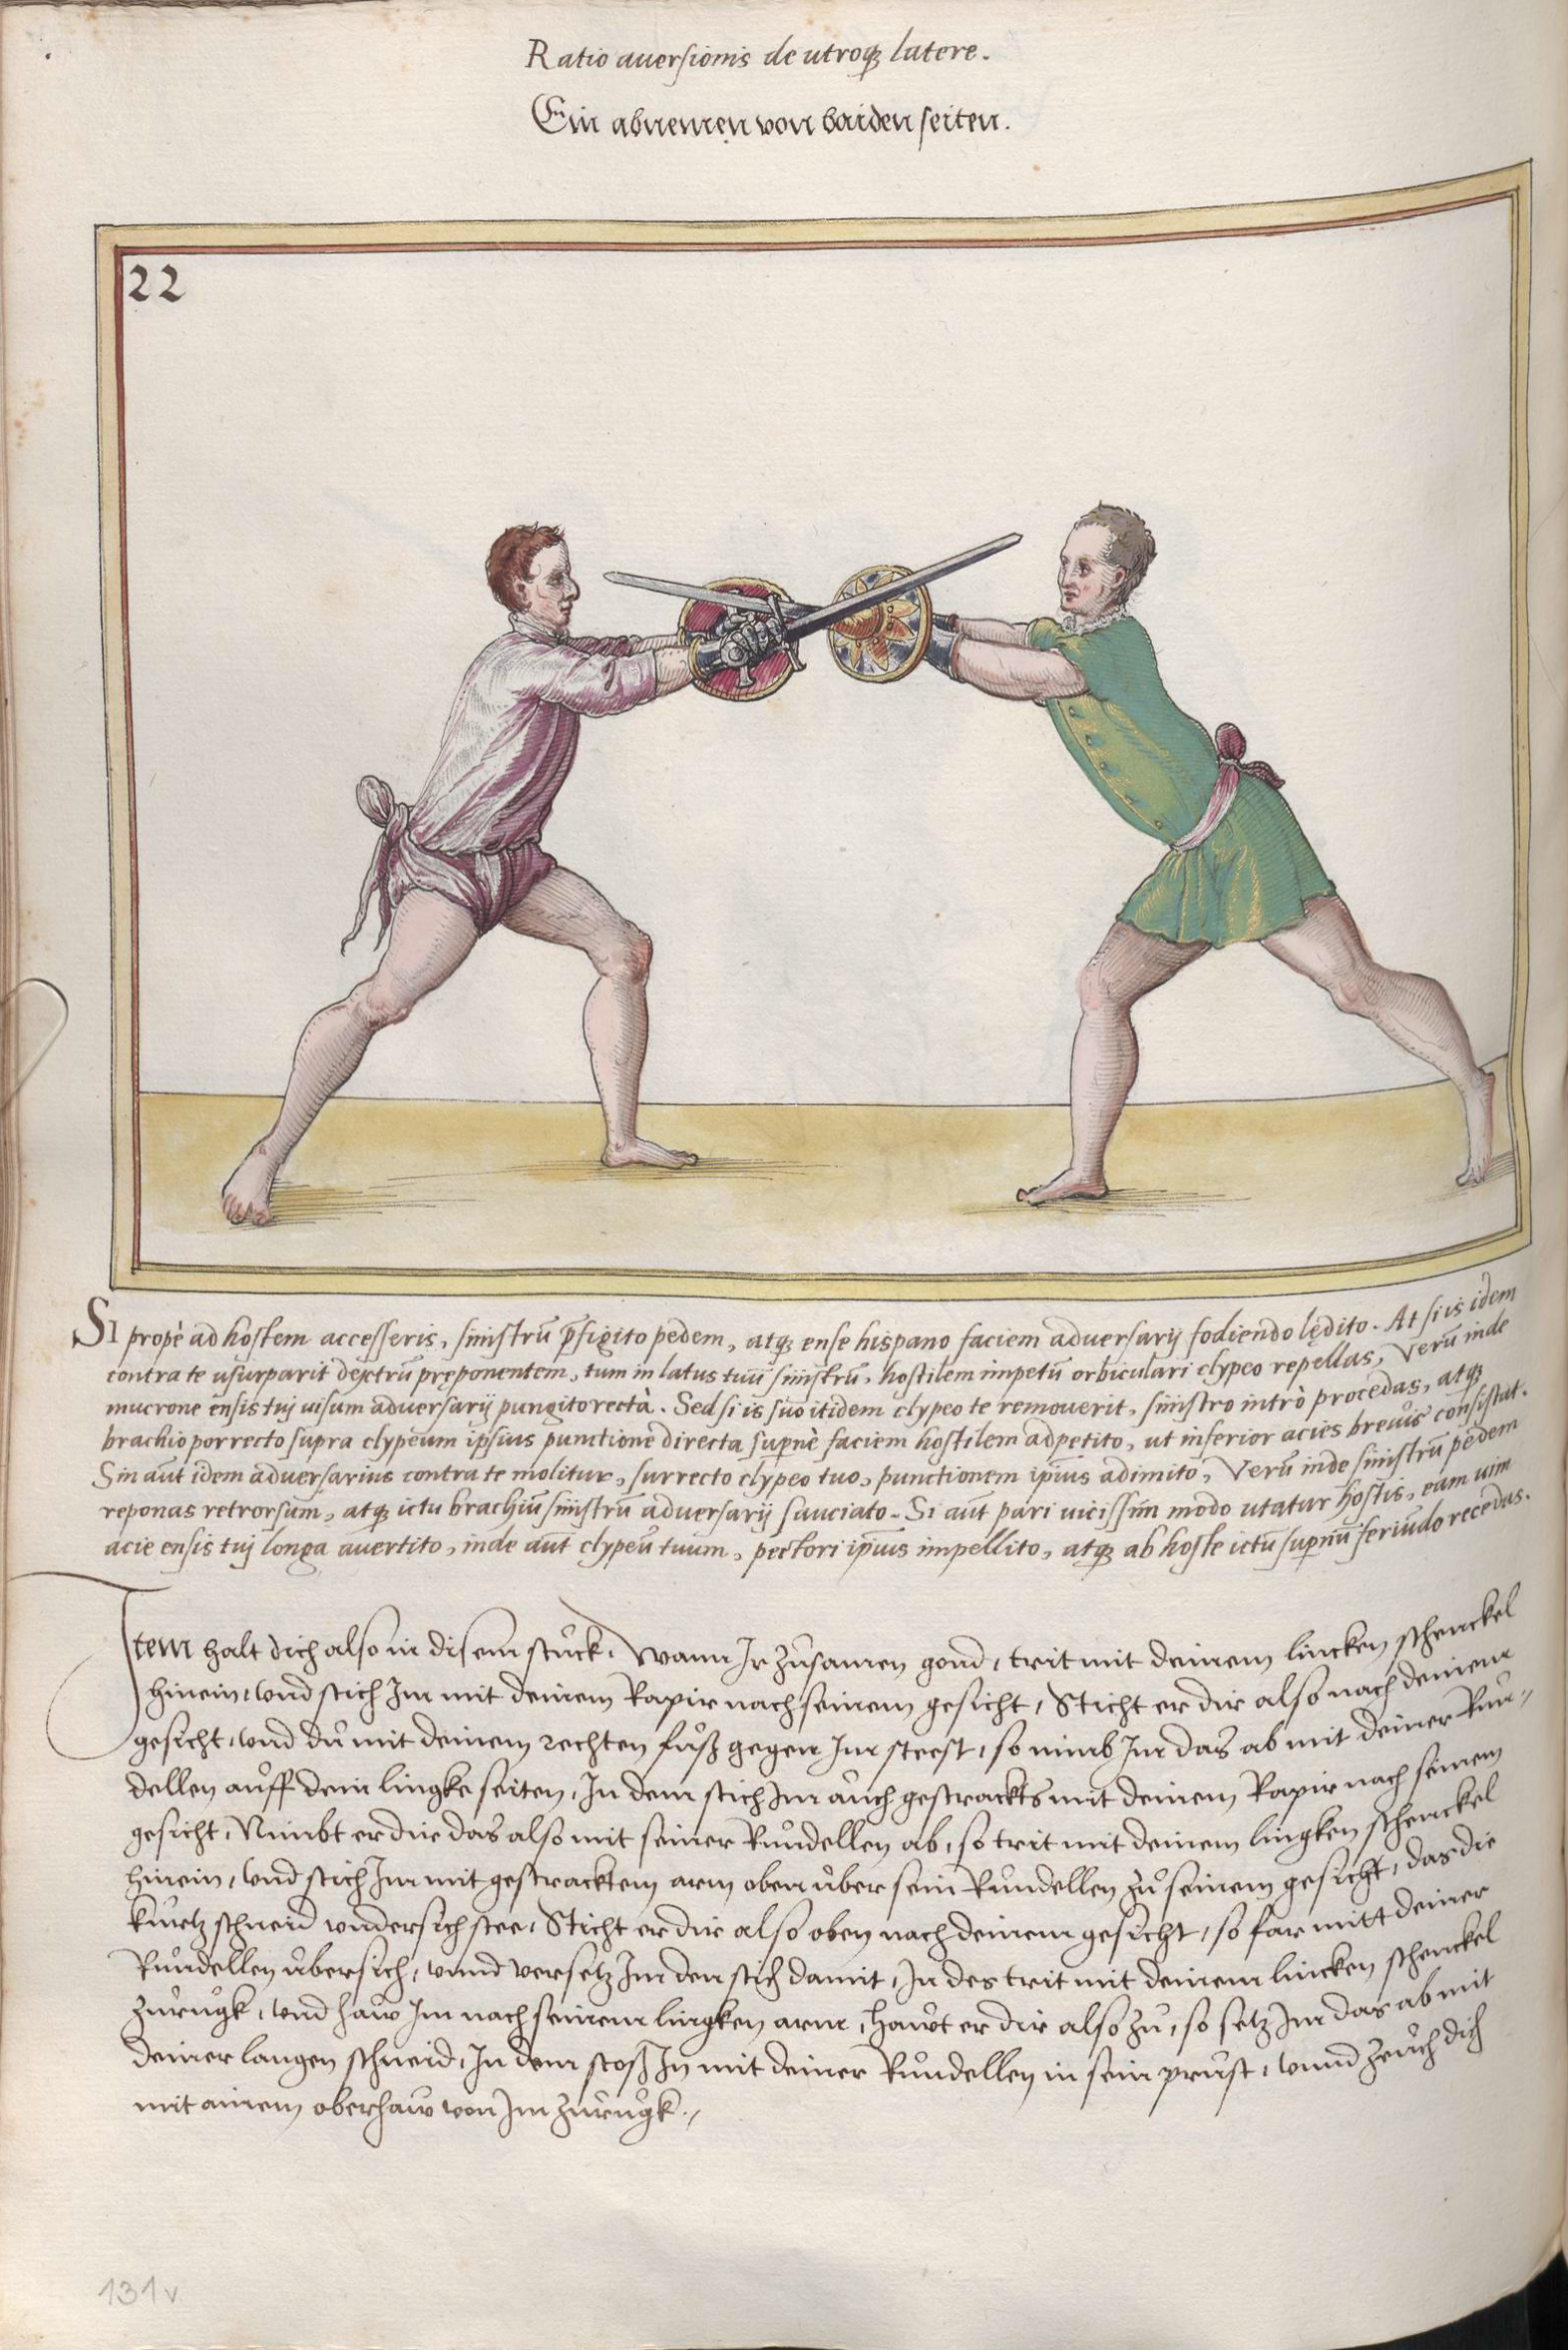 Ratio auersionis de utroq; latere.
Ein abnemen von baiden seiten.
22
SI propè ad hostem accesseris, sinistrũ p̃figito pedem, atq; ense hispano faciem adversarij fodiendo lędito. At si is idem
contra te usurparit dextrũ pręponentem, tum in latus tuũ sinistrũ, hostilem impetũ orbiculari clypeo repellas, Verũ inde
mucrone ensis tuj uisum adversarij pungito rectà. Sed si is suo itidem clypeo te remouerit, sinistro intrò procedas, atq;
brachio porrecto supra clypeum ipsius punctione directa supernè faciem hostilem adpetito, ut inferior acies brevis consistat.
Sin aũt idem adversarius contra te molitur, surrecto clypeo tuo, punctionem ip̃ius adimito, Verũ inde sinistrũ pedem
reponas retrorsum, atq; ictu brachiũ sinistrũ adversarij sauciato. Si aũt pari uicissim modo utatur hostis, eam uim
acie ensis tuj longa auertito, inde aũt clypeũ tuum, pectori ip̃ius impellito, atq; ab hoste ictũ supernũ feriũdo recedas.
Item halt dich also in disem stůck, Wann Ir zůsamen gond, trit mit deinem lincken schenckel
hinein, vnd stich Im mit deinem Rapir nach seinem gesicht, Sticht er dir also nach deinem
gesicht, vnd dů mit deinem rechten fůß gegen Im steest, so nimb Im das ab mit deiner Růn-
dellen aůff dein lingke seiten, In dem stich Im aůch gestrackts mit deinem Rapir nach seinem
gesicht, Nimbt er dir das also mit seiner Růndellen ab, so trit mit deinem lingken schenckel
hinein, vnd stich Im mit gestracktem arm oben ůber sein Růndellen zů seinem gesicht, das die
kůrtz schneid vndersich stee, Sticht er dir also oben nach deinem gesicht, so far mitt deiner
Růndellen ůbersich, vnnd versetz Im den stich damit, In des trit mit deinem lincken schenckel
zůrůgk, vnd haw Im nach seinem lingken arm, hawt er dir also zů, so setz Im das ab mit
deiner langen schneid, In dem stoß In mit deiner Růndellen in sein průst, vnnd zeůch dich
mit ainem oberhaw von Im zůrůgk.
131v